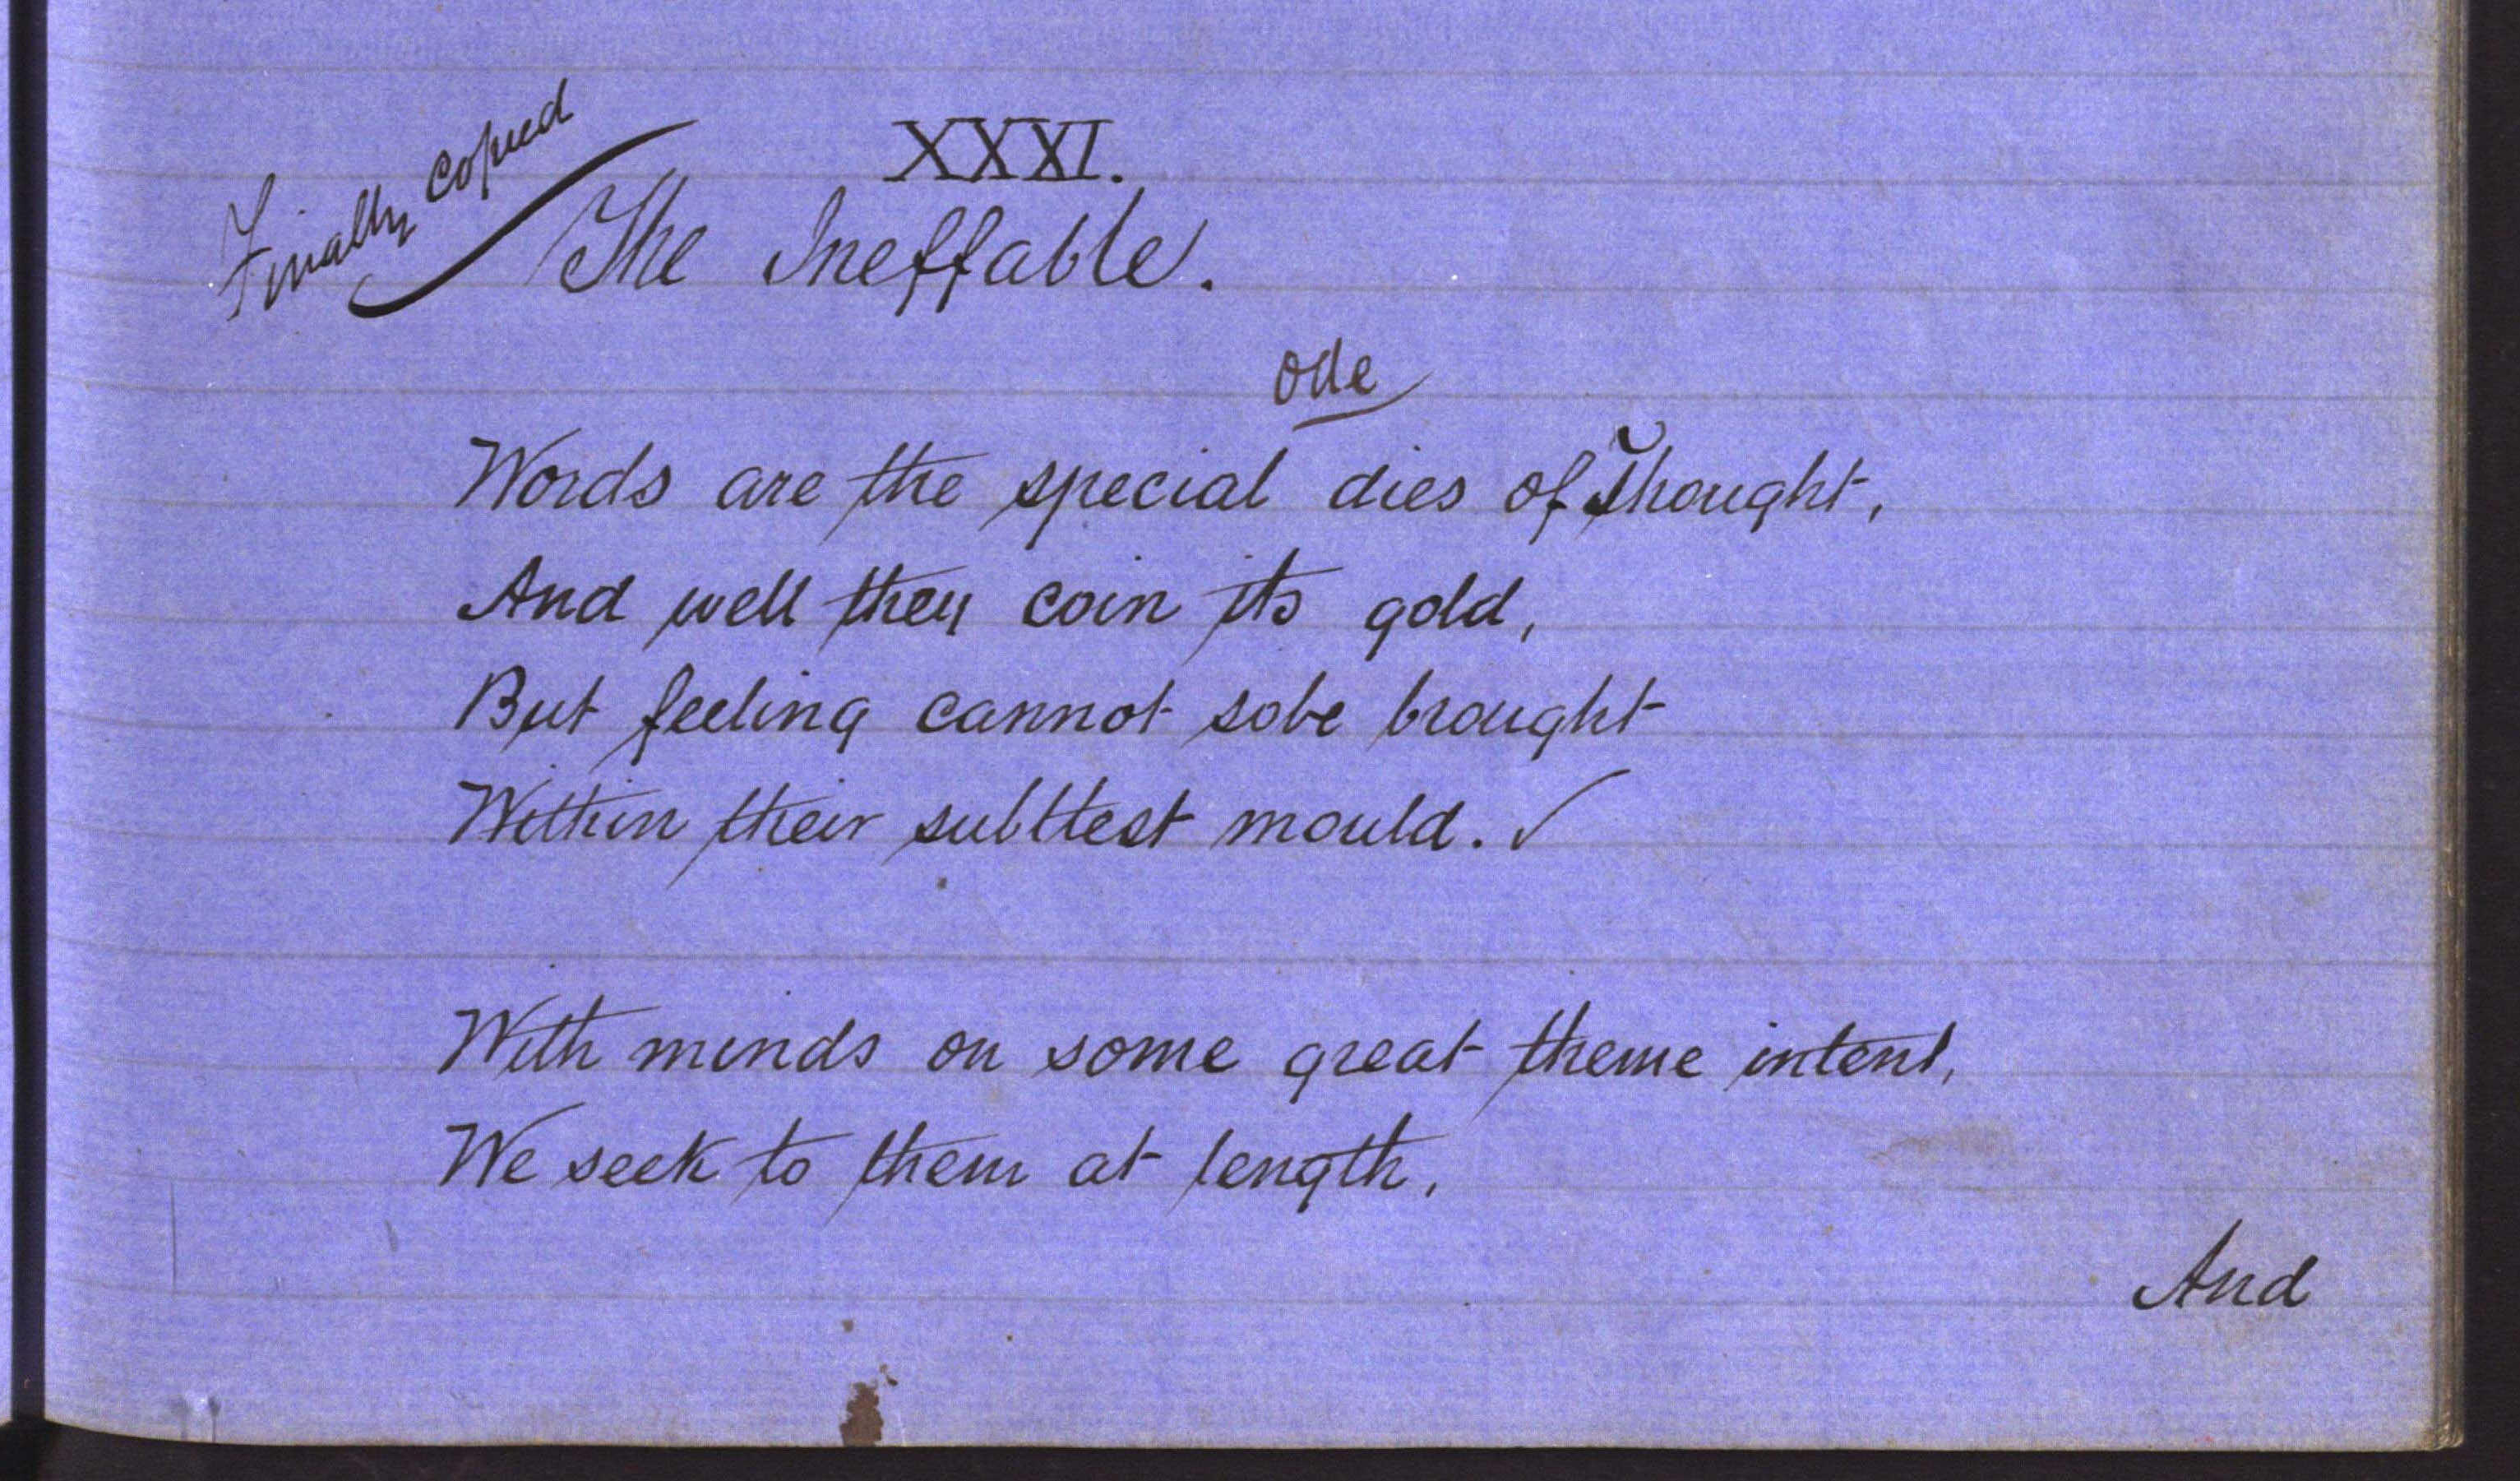 Finally copied
XXXI.
The Ineffable.
ode
Words are the special dies of Thought,
And well they coin its gold,
But feeling cannot so be brought
Within their subtlest mould. ✓
With minds on some great theme intent,
We seek to them at length,
And